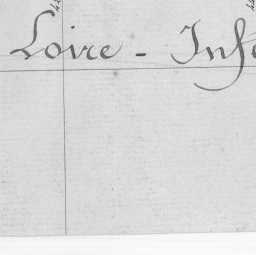 Loire - Infé